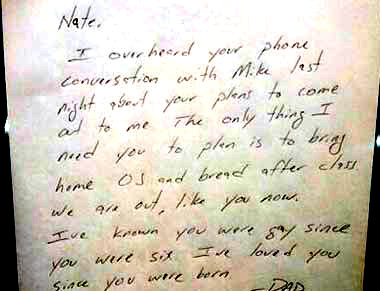 Nate,
I overheard your phone
conversation with Mike last
night about your plans to come
out to me. The only thing I
need you to plan is to bring
home OJ and bread after class.
We are out, like you now.
I've known you were gay since
you were six. I've loved you
since you were born.
-DAD